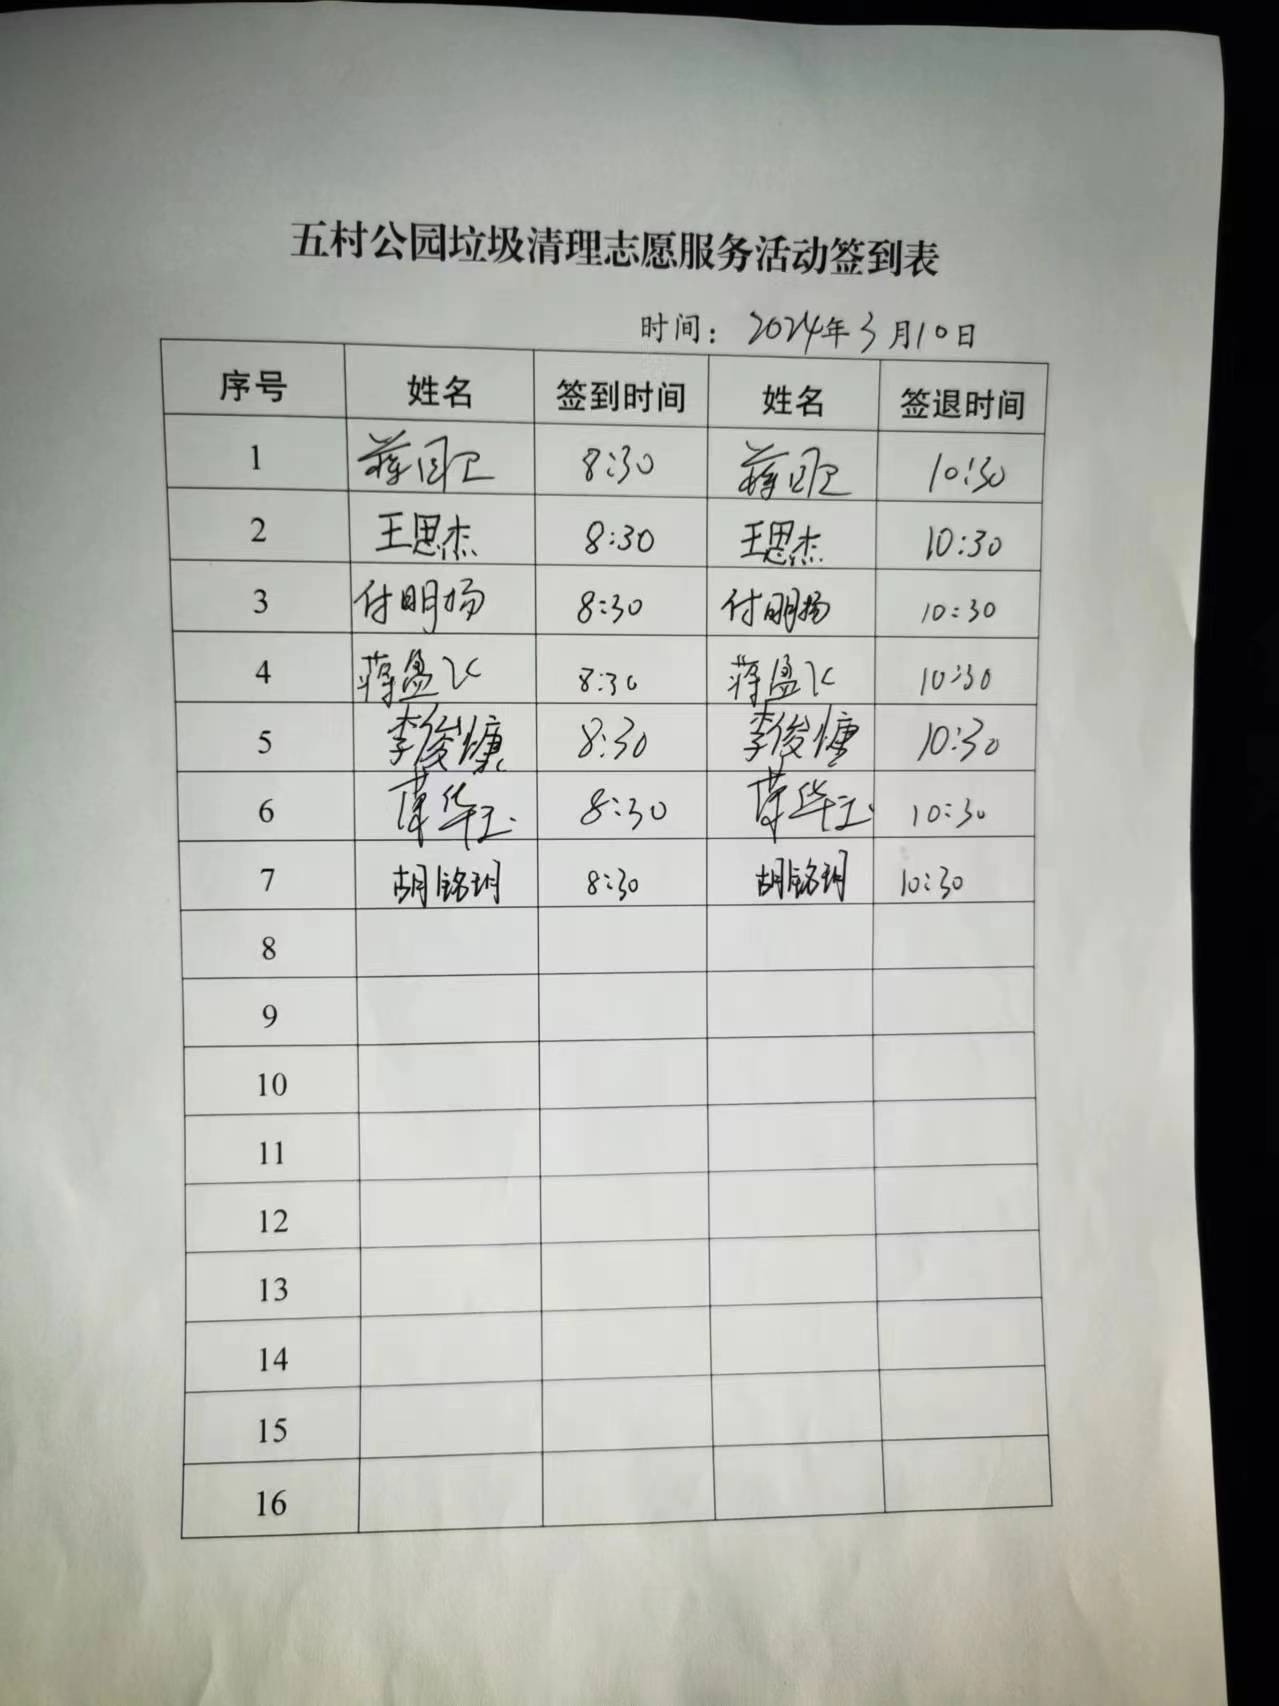 五村公园垃圾清理志愿服务活动签到表
时间：2024年3月10日
序号 姓名 签到时间 姓名 签退时间
1 蒋 8:30 蒋 10:30
2 王思杰 8:30 王思杰 10:30
3 付明扬 8:30 付明扬 10:30
4 蒋盈 8:30 蒋盈 10:30
5 李俊慷 8:30 李俊慷 10:30
6 华玉 8:30 华玉 10:30
7 胡铭玥 8:30 胡铭玥 10:30
8
9
10
11
12
13
14
15
16